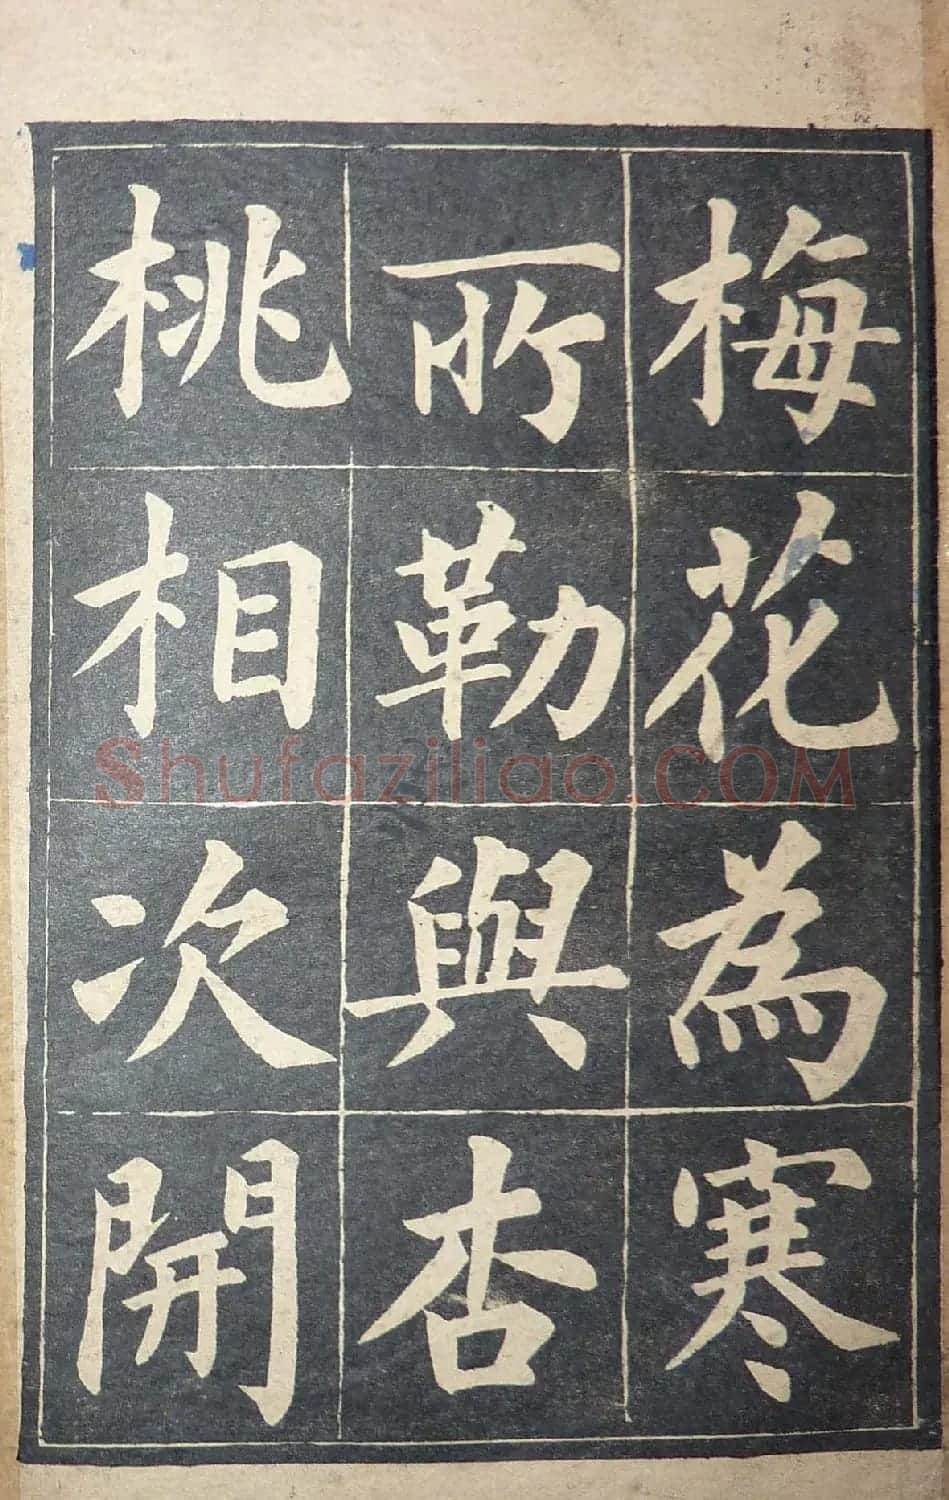 梅花為寒
所勒與杏
桃相次開
Shufaziliao.COM